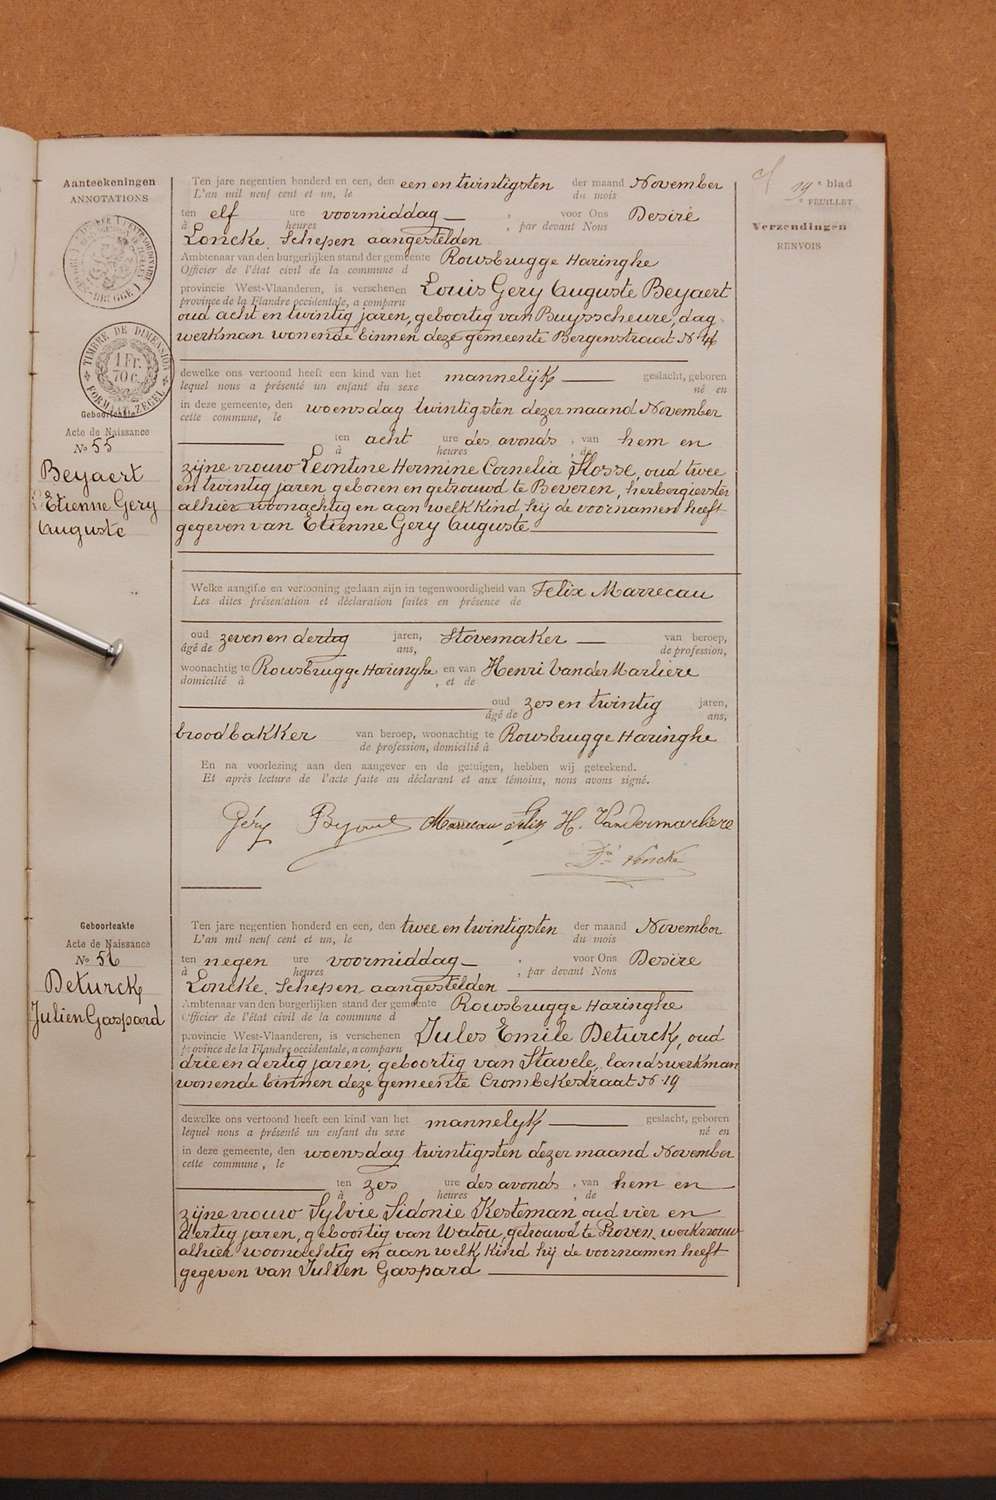 Aanteekeningen
ANNOTATIONS
19e blad
e FEUILLET
Verzendingen
RENVOIS
TIMBRE DE DIMENSION
1 Fr.
70 c.
FORMAAT-ZEGEL
Geboorteakte
Acte de Naissance
No 55
Beyaert
Etienne Gery
Auguste
Ten jare negentien honderd en een, den een en twintigsten der maand November
L'an mil neuf cent et un, le du mois
ten elf ure voormiddag , voor Ons Desiré
à heures , par devant Nous
Loncke, Schepen aangestelden
Ambtenaar van den burgerlijken stand der gemeente Rousbrugge Haringhe
Officier de l'état civil de la commune d
provincie West-Vlaanderen, is verschenen Louis Gery Auguste Beyaert
province de la Flandre occidentale, a comparu
oud acht en twintig jaren, geboortig van Buysscheure, dag-
werkman wonende binnen deze gemeente Bergenstraat No
dewelke ons vertoond heeft een kind van het mannelijk geslacht, geboren
lequel nous a présenté un enfant du sexe né en
in deze gemeente, den woensdag twintigsten dezer maand November
cette commune, le
ten acht ure des avonds , van hem en
à heures , de
zijne vrouw Leontine Hermine Cornelia Flosse, oud twee
en twintig jaren geboren en getrouwd te Beveren, herbergierster
alhier woonachtig en aan welk kind hij de voornamen heeft
gegeven van Etienne Gery Auguste
Welke aangifte en vertooning gedaan zijn in tegenwoordigheid van Felix Marrecau
Les dites présentation et déclaration faites en présence de
oud zeven en dertig jaren, Stovemaker van beroep,
âgé de ans, de profession,
woonachtig te Rousbrugge Haringhe, en van Henri Vander Marliere
domicilié à , et de
oud zes en twintig jaren,
âgé de ans,
broodbakker van beroep, woonachtig te Rousbrugge Haringhe
de profession, domicilié à
En na voorlezing aan den aangever en de getuigen, hebben wij geteekend.
Et après lecture de l'acte faite au déclarant et aux témoins, nous avons signé.
Géry Beyaert Marrecau Felix H. Vandermarliere
Dé Loncke
Geboorteakte
Acte de Naissance
No 56
Deturck
Julien Gaspard
Ten jare negentien honderd en een, den twee en twintigsten der maand November
L'an mil neuf cent et un, le du mois
ten negen ure voormiddag , voor Ons Desire
à heures , par devant Nous
Loncke, Schepen aangestelden
Ambtenaar van den burgerlijken stand der gemeente Rousbrugge Haringhe
Officier de l'état civil de la commune d
provincie West-Vlaanderen, is verschenen Jules Emile Deturck, oud
province de la Flandre occidentale, a comparu
drie en dertig jaren, geboortig van Stavele, landswerkman
wonende binnen deze gemeente Crombekestraat No 19
dewelke ons vertoond heeft een kind van het mannelyk geslacht, geboren
lequel nous a présenté un enfant du sexe né en
in deze gemeente, den woensdag twintigsten dezer maand November
cette commune, le
ten zes ure des avonds , van hem en
à heures , de
zijne vrouw Sylvie Sidonie Kesteman oud vier en
dertig jaren, geboortig van Watou, getrouwd te Proven, werkvrouw
alhier woonachtig en aan welk kind hij de voornamen heeft
gegeven van Julien Gaspard